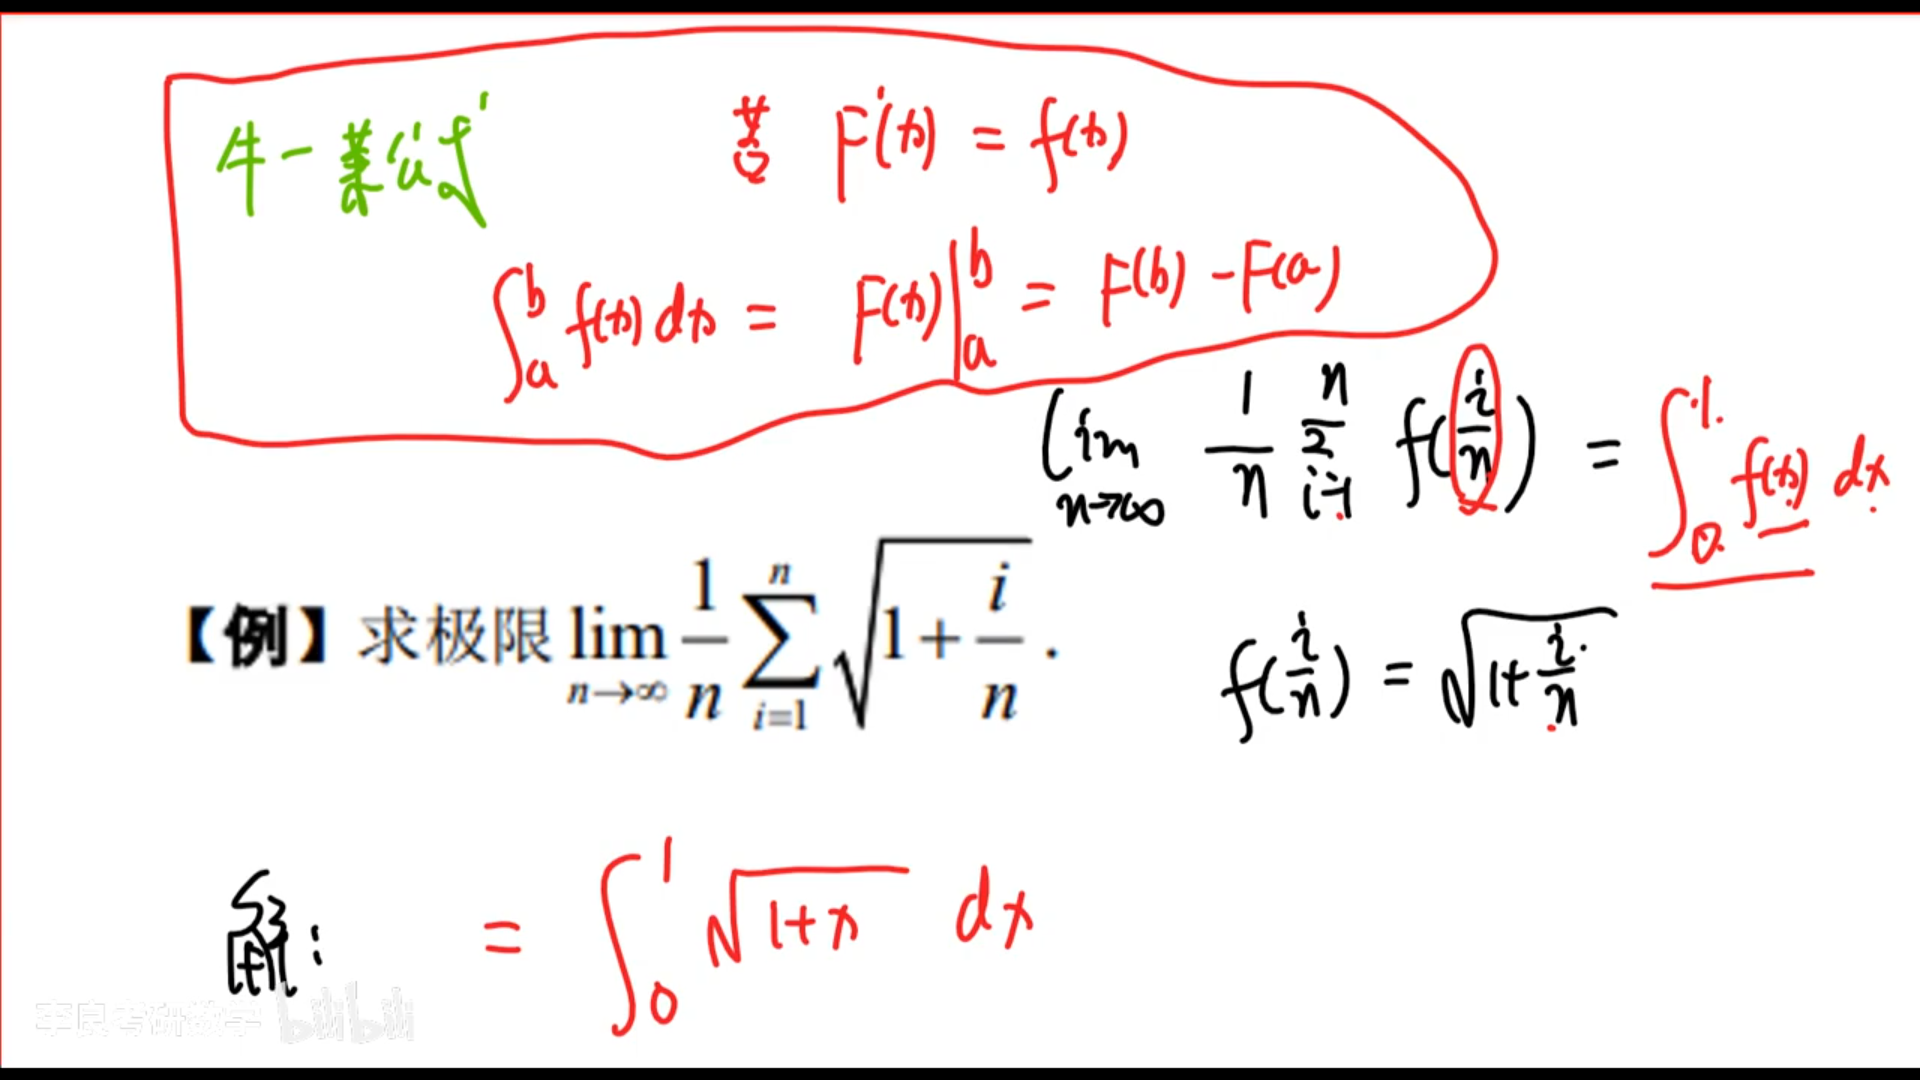 牛-莱公式 若 F'(x) = f(x)
∫_a^b f(x) dx = F(x)|_a^b = F(b) - F(a)
lim_{n→∞} 1/n ∑_{i=1}^n f(i/n) = ∫_0^1 f(x) dx
【例】求极限 lim_{n→∞} 1/n ∑_{i=1}^n √(1+i/n) .
f(i/n) = √(1+i/n)
解: = ∫_0^1 √(1+x) dx
李良考研数学 bilibili